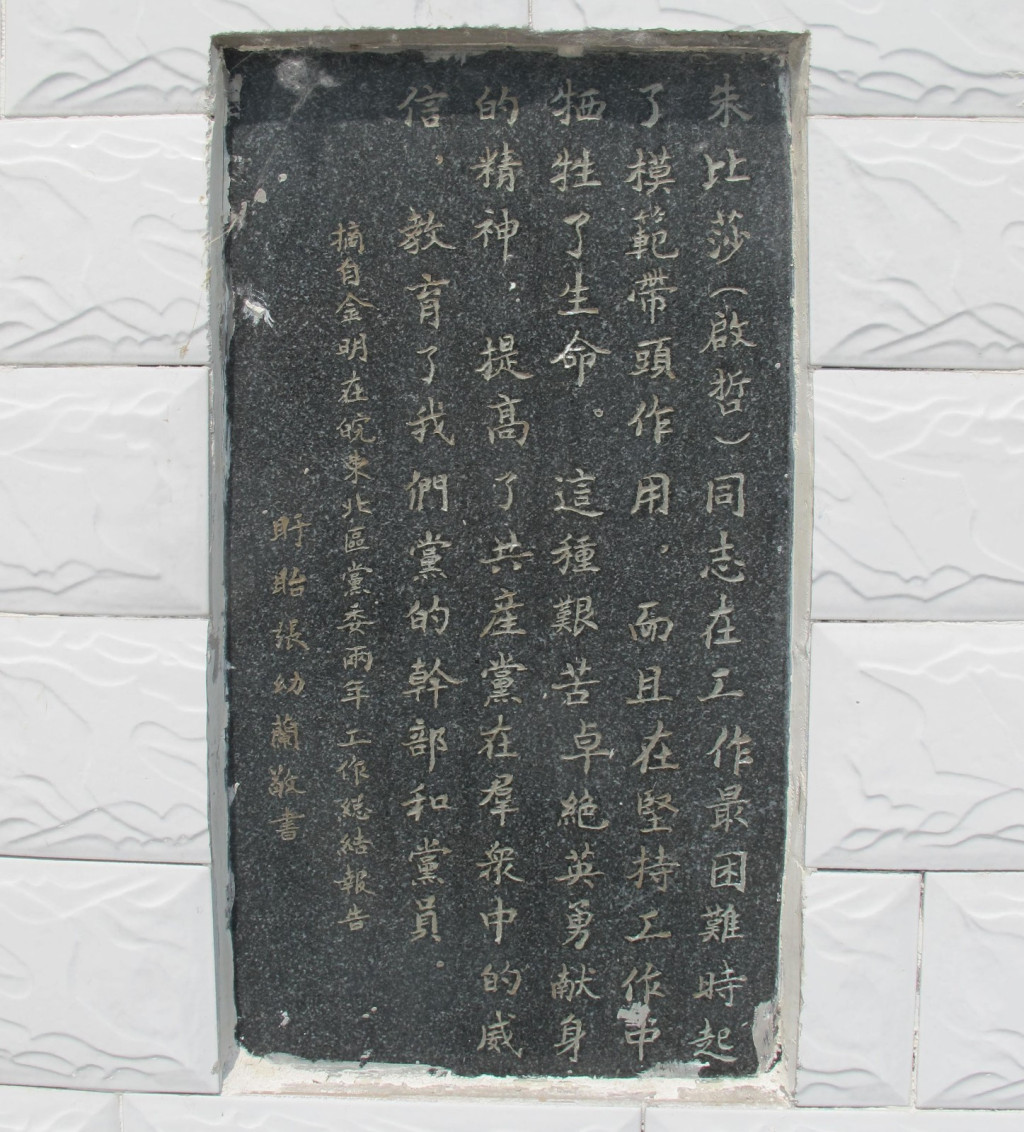 朱比莎（啟哲）同志在工作最困難時起
了模範帶頭作用，而且在堅持工作中
牺牲了生命。這種艱苦卓絕英勇献身
的精神，提高了共産黨在羣衆中的威
信，教育了我們黨的幹部和黨員。
摘自金明在皖東北區黨委兩年工作総结報告
盱眙張幼蘭敬書